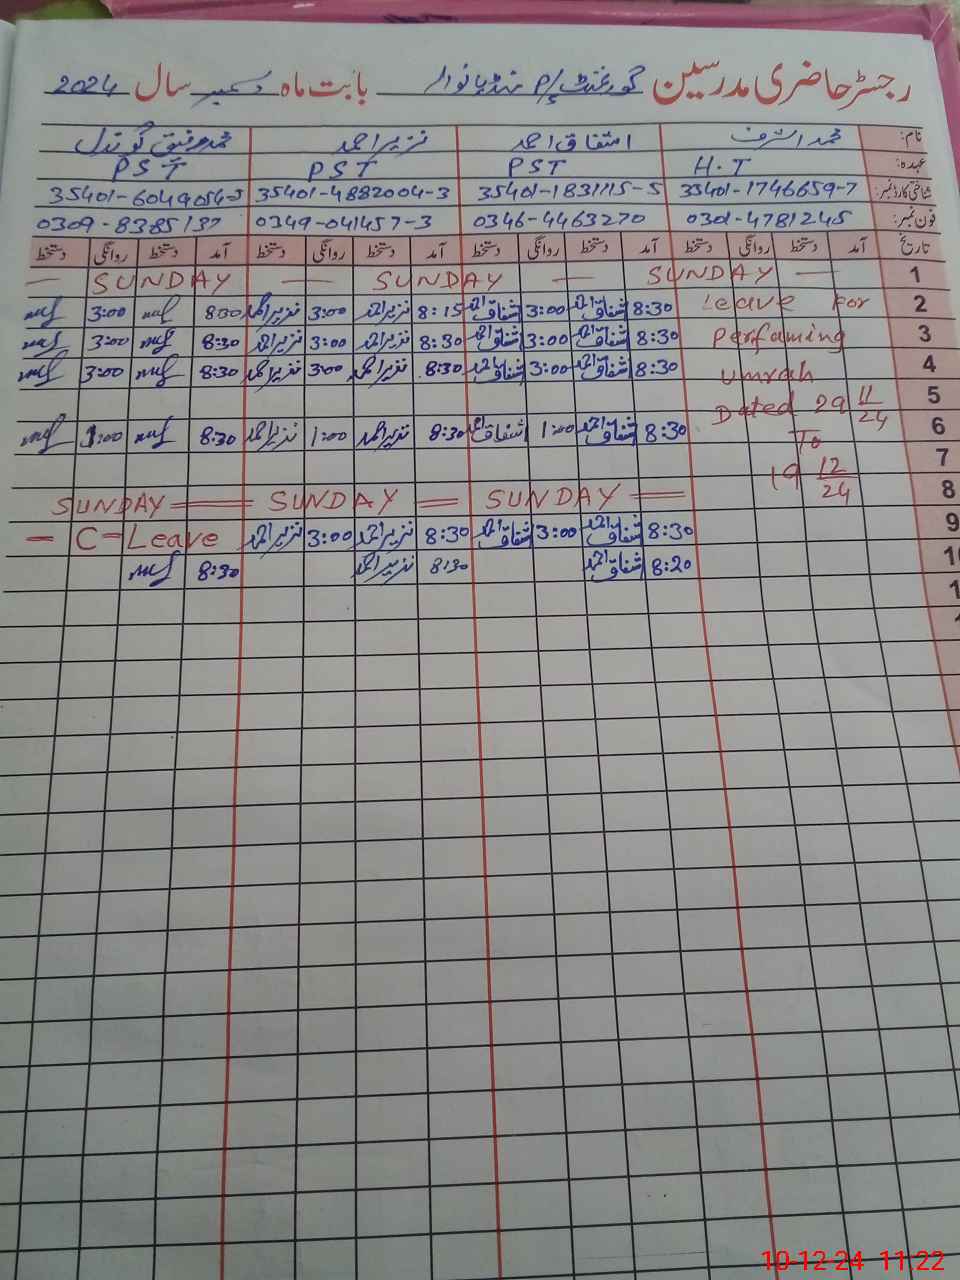 رجسٹر حاضری مدرسین گورنمنٹ P/S بابت ماہ دسمبر سال 2024
نام: محمد اشرف اشتفاق احمد نزیر احمد محمد رفیق گوندل
عہدہ: H.T PST PST PST
شناختی کارڈ نمبر: 35401-1746659-7 35401-1831115-5 35401-4882004-3 35401-6049054-5
فون نمبر: 0301-4781245 0346-4463270 0349-041457-3 0309-8385137
تاریخ آمد دستخط روانگی دستخط آمد دستخط روانگی دستخط آمد دستخط روانگی دستخط آمد دستخط روانگی دستخط
1 SUNDAY — SUNDAY — SUNDAY —
2 Leave For 8:30 شفاق احمد 3:00 شفاق احمد 8:15 نزیر احمد 3:00 نزیر احمد 8:30 3:00
3 Perfaming 8:30 شفاق احمد 3:00 شفاق احمد 8:30 نزیر احمد 3:00 نزیر احمد 8:30 3:00
4 Umrah 8:30 شفاق احمد 3:00 شفاق احمد 8:30 نزیر احمد 3:00 نزیر احمد 8:30 3:00
5 Dated 29 11/24
6 To 8:30 شفاق احمد 1:00 شفاق احمد 8:30 نزیر احمد 1:00 نزیر احمد 8:30 1:00
7 19 12/24
8 SUNDAY SUNDAY SUNDAY
9 8:30 شفاق احمد 3:00 شفاق احمد 8:30 نزیر احمد 3:00 نزیر احمد C-Leave —
10 8:20 شفاق احمد 8:30 نزیر احمد 8:30
10-12-24 11:22